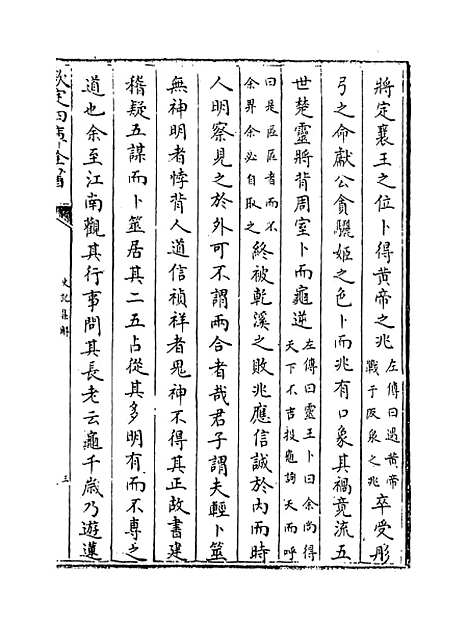 將定襄王之位卜得黄帝之兆左傳曰遇黄帝戰于阪泉之兆卒受彤
弓之命獻公貪驪姬之色卜而兆有口象其禍竟流五
世楚靈將背周室卜而龜逆左傳曰靈王卜曰余尚得天下不吉投龜詢天而呼
曰是區區者而不余畀余必自取之終被乾溪之敗兆應信誠於内而時
人明察見之於外可不謂兩合者哉君子謂夫輕卜筮
無神明者悖背人道信禎祥者鬼神不得其正故書建
稽疑五謀而卜筮居其二五占從其多明有而不專之
道也余至江南觀其行事問其長老云龜千歲乃遊蓮
欽定四庫全書
史記集解
三